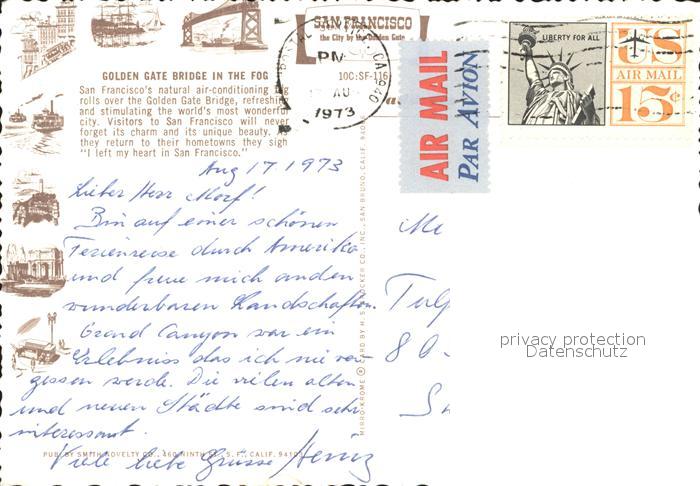 SAN FRANCISCO
the City by the Golden Gate
PM
AU
1973
LIBERTY FOR ALL
US
AIR MAIL
15¢
AIR MAIL
PAR AVION
GOLDEN GATE BRIDGE IN THE FOG
10C:SF-116
San Francisco's natural air-conditioning
rolls over the Golden Gate Bridge, refreshing
and stimulating the world's most wonderful
city. Visitors to San Francisco will never
forget its charm and its unique beauty.
they return to their hometowns they sigh
"I left my heart in San Francisco."
Aug 17 1973
Lieber Herr Morf!
Bin auf einer schönen
Ferienreise durch Amerika
und freue mich an den
wunderbaren Landschaften.
Grand Canyon war ein
Erlebniss das ich nie ver-
gessen werde. Die vielen alten
und neuen Städte sind sehr
interessant.
Viele liebe Grüsse Heinz
PUB. BY SMITH NOVELTY CO., 460 NINTH ST., S. F., CALIF. 94103
MIRRO-KROME ® CARD BY H. S. CROCKER CO., INC., SAN BRUNO, CALIF.
privacy protection
Datenschutz